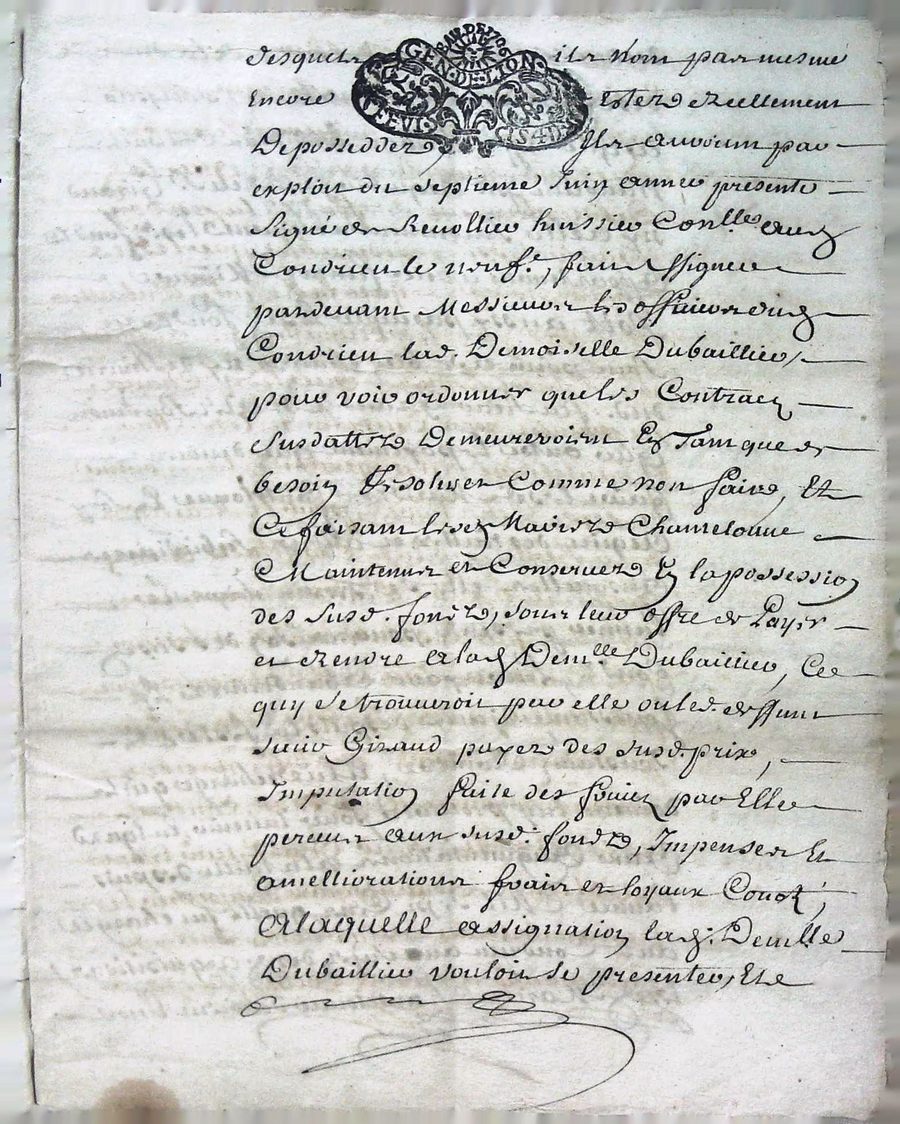 desquels ils nont pas mesme
GEN·DE·LION
encore Estez reellement
Deposseddez Ils auroient par
exploit du septieme Juin année presente
signé de Reuollier huissier Con.lle aud
Condrieu le neuf.e, fait assigner
pardeuant Messieurs les officiers dud
Condrieu lad. Demoiselle Dubaillier,
pour voir ordonner que les Contracts
susdattez Demeureroient En Tant que de
besoin Resolues Comme non faits, Et
Ce faisant lesd Mariez Chantelouue
Maintenus et Conseruez En la possession
des susd. fondz, sous leur offre de Payer
et Rendre a lad Dem.lle Dubaillier, Ce
quy se trouueroit par elle ou led. deffunt
sieur Giraud payez des susd. prix,
Imputation faite des fruicts par Elle
perceus aux susd. fondz, Impenses Et
ameliorations frais et loyaux Couts,
A laquelle assignation lad. Demlle
Dubaillier vouloit se presenter, Et